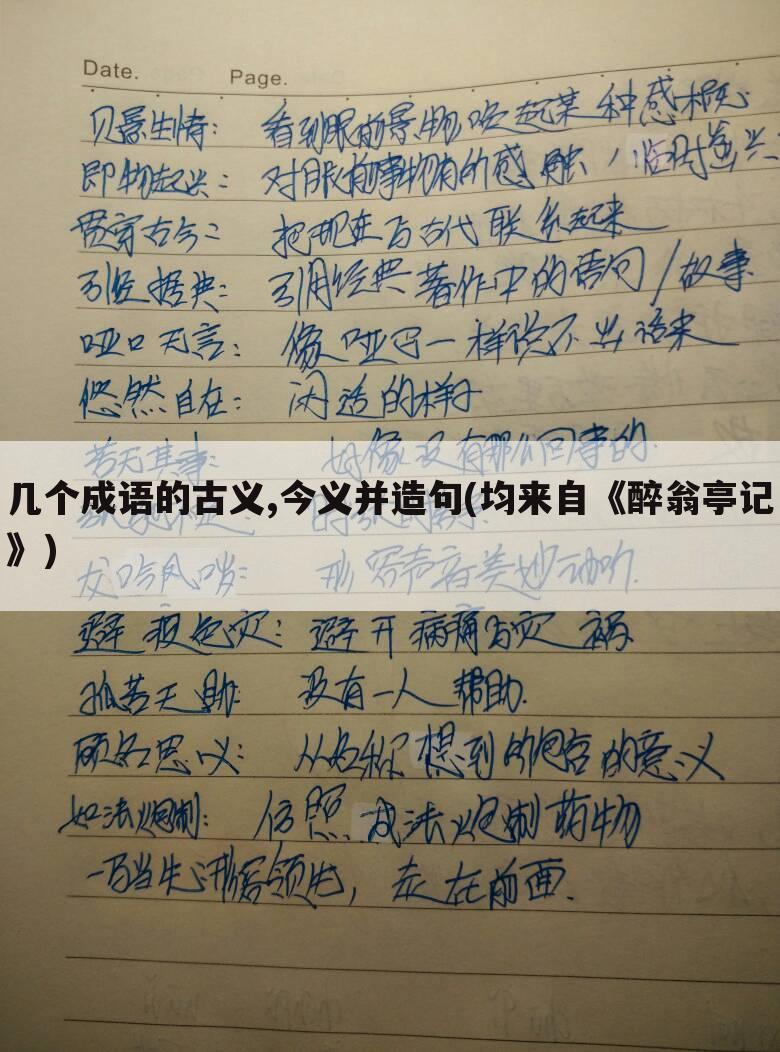 Date. Page.
贝景生情: 看到眼前景物唤起某种感概
即物起兴: 对眼前事物有的感触,临时造兴
贯穿古今: 把现在与古代联系起来
引经据典: 引用经典著作中的语句/故事
哑口无言: 像哑巴一样说不出话来
悠然自在: 闲适的样子
若无其事: 好像没有那么回事的
几个成语的古义,今义并造句(均来自《醉翁亭记
》)
龙吟凤哕: 形容声音美妙动听.
避疫免灾: 避开病痛与灾祸
孤苦无助: 没有一人帮助.
顾名思义: 从名称想到所包含的意义
如法炮制: 仿照成法炮制药物
一马当先: 形容领先, 走在前面.